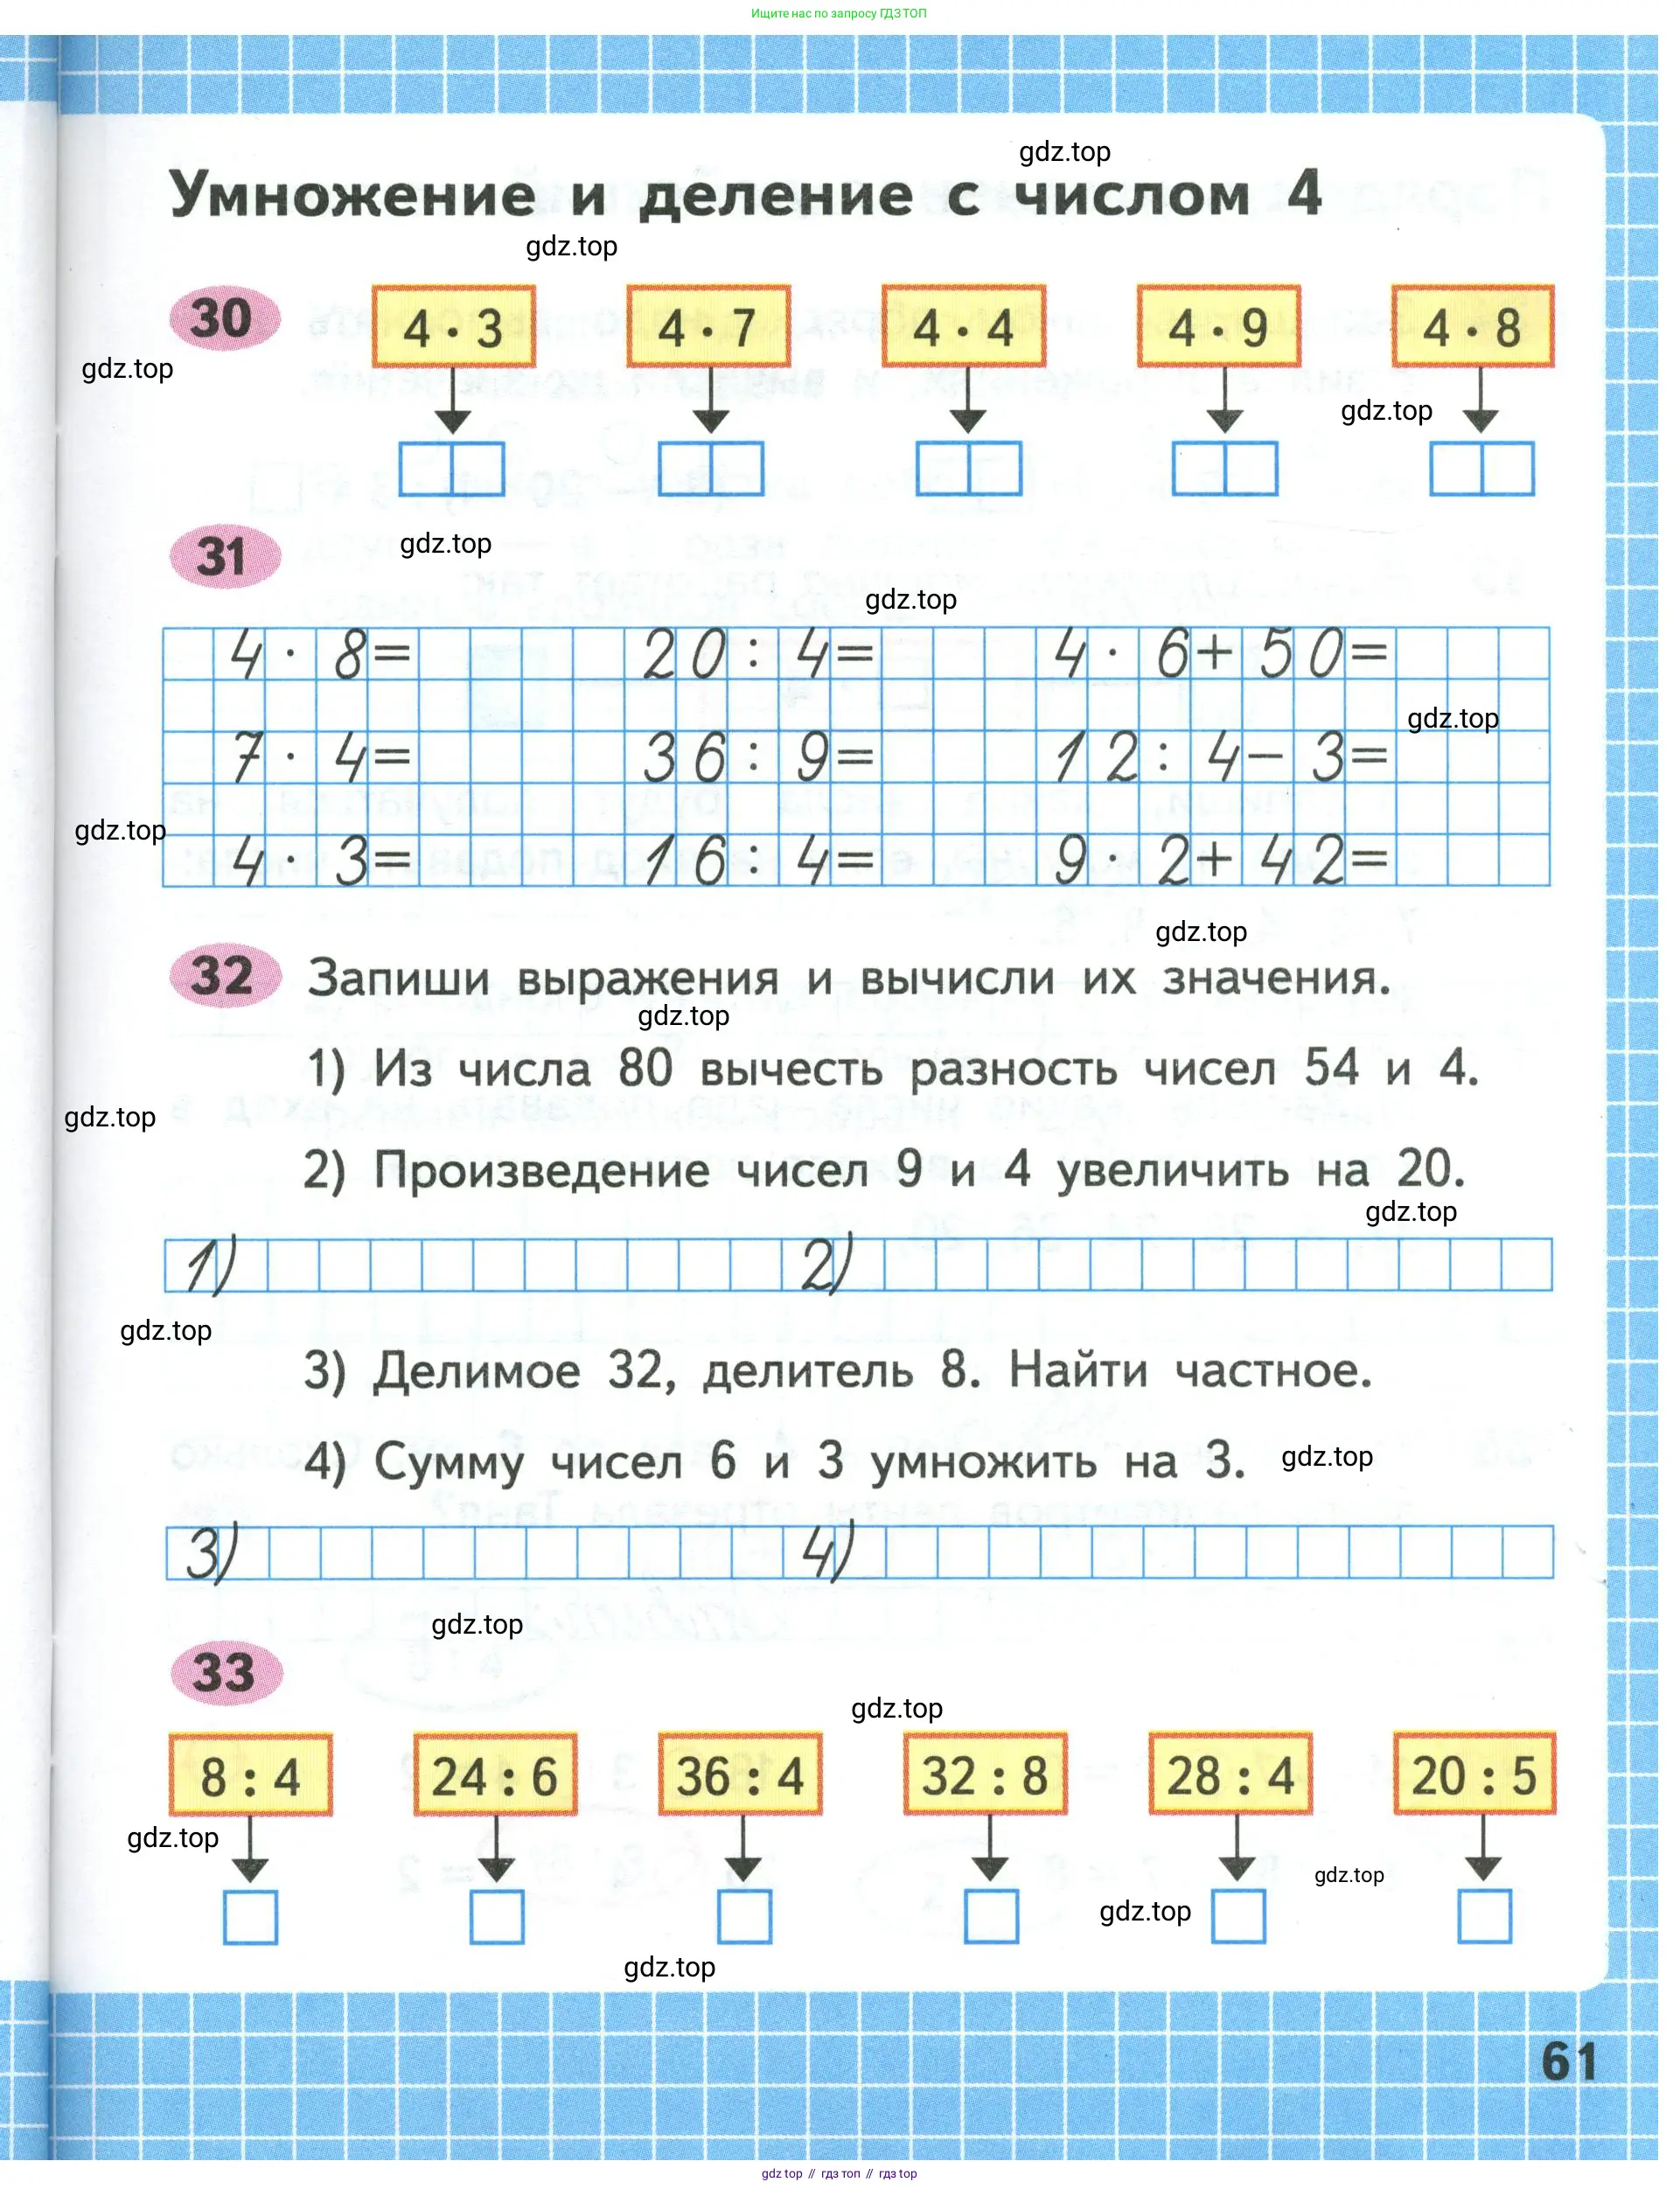 Ищите нас по запросу ГДЗ ТОП
gdz.top
Умножение и деление с числом 4
gdz.top
30 4 · 3 4 · 7 4 · 4 4 · 9 4 · 8
gdz.top
gdz.top
31 gdz.top
gdz.top
4 · 8= 20 : 4= 4 · 6+50=
gdz.top
7 · 4= 36 : 9= 12 : 4−3=
gdz.top
4 · 3= 16 : 4= 9 · 2+42=
gdz.top
32 Запиши выражения и вычисли их значения.
gdz.top
1) Из числа 80 вычесть разность чисел 54 и 4.
gdz.top
2) Произведение чисел 9 и 4 увеличить на 20.
gdz.top
1) 2)
gdz.top
3) Делимое 32, делитель 8. Найти частное.
4) Сумму чисел 6 и 3 умножить на 3. gdz.top
3) 4)
gdz.top
33
gdz.top
8 : 4 24 : 6 36 : 4 32 : 8 28 : 4 20 : 5
gdz.top
gdz.top
gdz.top
gdz.top
61
gdz top // гдз топ // гдз top